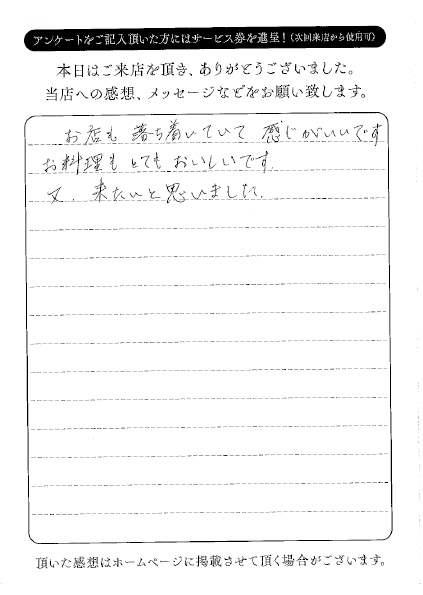 アンケートをご記入頂いた方にはサービス券を進呈!(次回来店から使用可)
本日はご来店を頂き、ありがとうございました。
当店への感想、メッセージなどをお願い致します。
お店も 落ち着いていて 感じがいいです
お料理も とても おいしいです.
又、来たいと思いました.
頂いた感想はホームページに掲載させて頂く場合がございます。